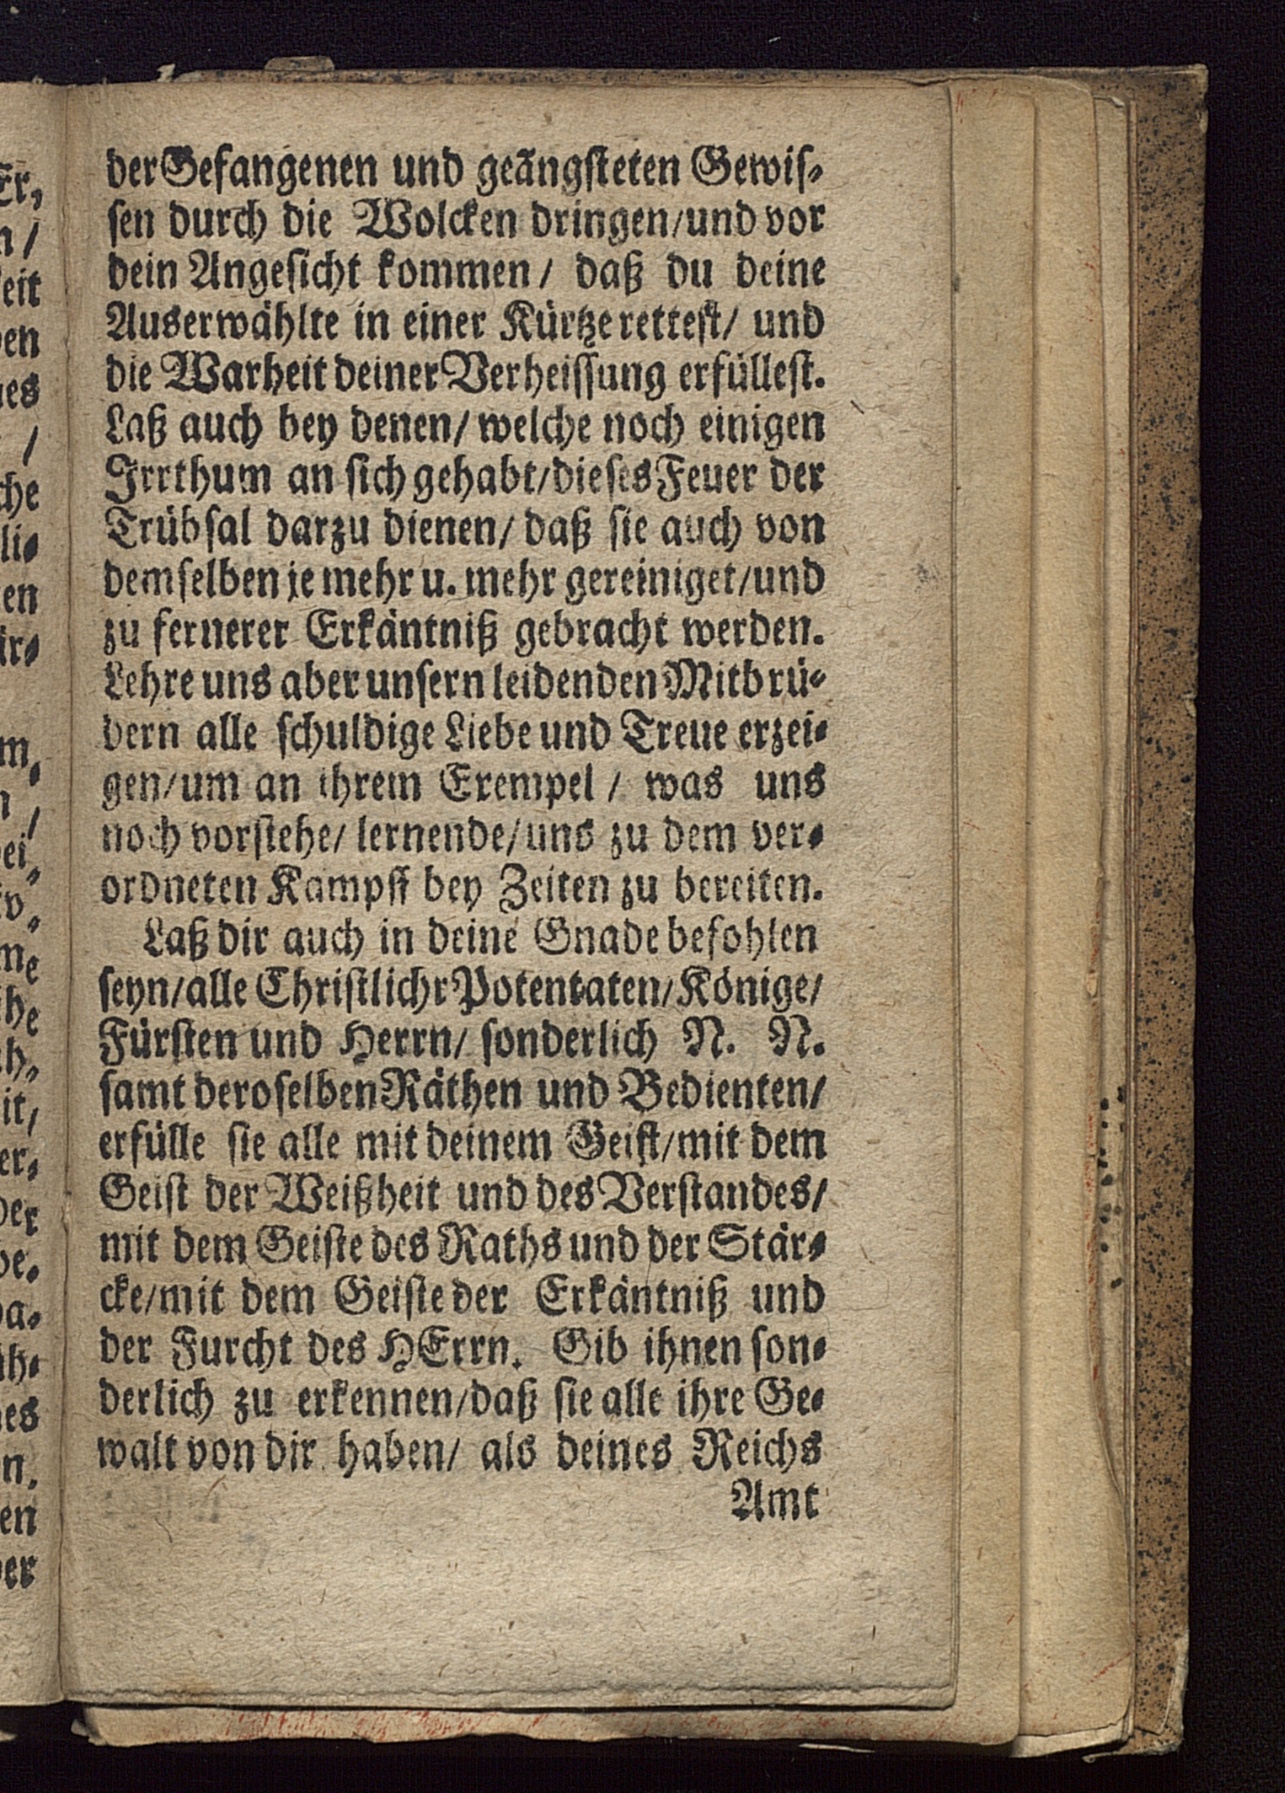 der Gefangenen und geängsteten Gewis-
sen durch die Wolcken dringen/und vor
dein Angesicht kommen/ daß du deine
Auserwählte in einer Kürtze rettest/ und
die Warheit deiner Verheissung erfüllest.
Laß auch bey denen/ welche noch einigen
Irrthum an sich gehabt/dieses Feuer der
Trübsal darzu dienen/ daß sie auch von
demselben je mehr u. mehr gereiniget/und
zu fernerer Erkäntniß gebracht werden.
Lehre uns aber unsern leidenden Mitbrü-
dern alle schuldige Liebe und Treue erzei-
gen/um an ihrem Exempel / was uns
noch vorstehe/ lernende/uns zu dem ver-
ordneten Kampff bey Zeiten zu bereiten.
Laß dir auch in deine Gnade befohlen
seyn/alle Christlichr Potentaten/Könige/
Fürsten und Herrn/ sonderlich N. N.
samt deroselben Räthen und Bedienten/
erfülle sie alle mit deinem Geist/mit dem
Geist der Weißheit und des Verstandes/
mit dem Geiste des Raths und der Stär-
cke/mit dem Geiste der Erkäntniß und
der Furcht des HErrn. Gib ihnen son-
derlich zu erkennen/daß sie alle ihre Ge-
walt von dir haben/ als deines Reichs
Amt